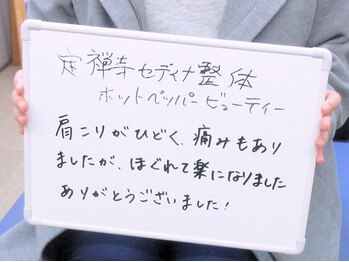 定禅寺セディナ整体
ホットペッパービューティー
肩こりがひどく、痛みもあり
ましたが、ほぐれて楽になりました
ありがとうございました!